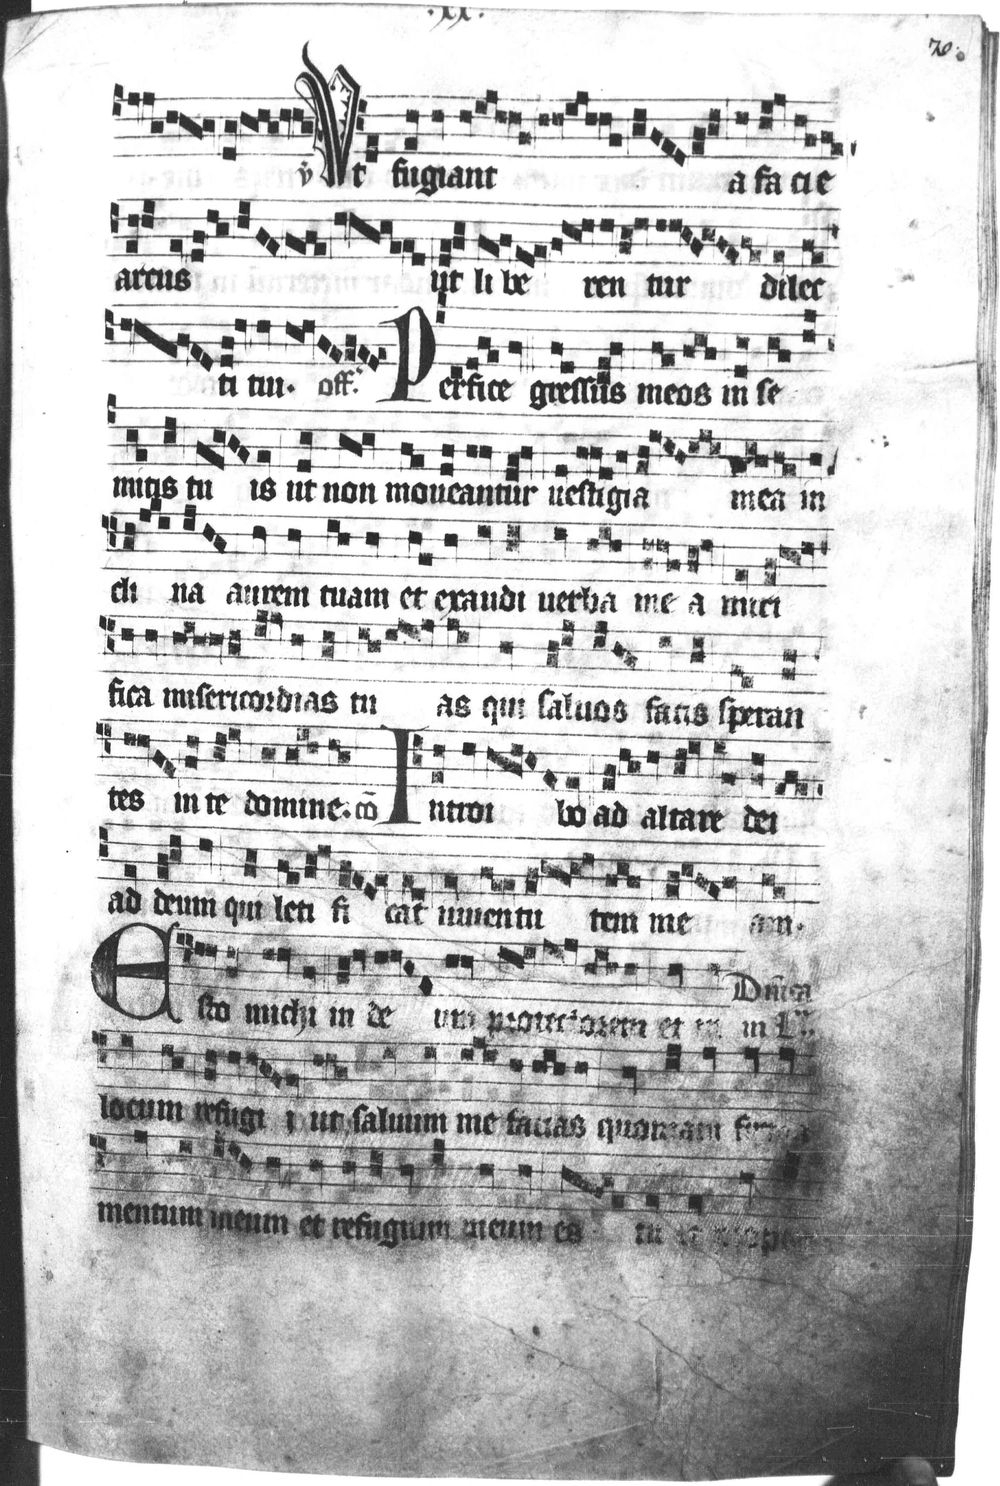 .xx.
70.
v̄ Vt fugiant a fa cie
arcus ut li be ren tur dilec
ti tui. off. Perfice gressus meos in se
mitis tu is ut non moveantur uestigia mea in
cli na aurem tuam et exaudi uerba me a miri
fica misericordias tu as qui saluos facis speran
tes in te domine. cō Introi bo ad altare dei
ad deum qui leti fi cat iuuentu tem me am.
Dn̄ica
Esto michi in de um protectorem et in in L
locum refugi i ut saluum me facias quoniam firma
mentum meum et refugium meum es tu et prop